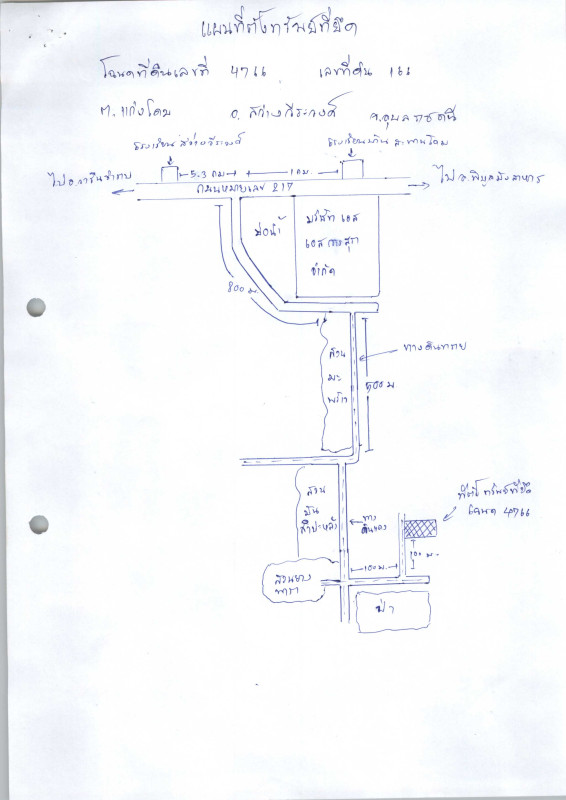 แผนที่ตั้งทรัพย์ที่ยึด
โฉนดที่ดินเลขที่ 4766 เลขที่ดิน 166
ต. แก่งโดม อ. สว่างวีระวงศ์ จ.อุบลราชธานี
โรงเรียนสว่างวีรวงศ์
โรงเรียนบ้าน สะพานโดม
ไป อ.วารินชำราบ
5.3 กม.
1 กม.
ไป อ.พิบูลมังสาหาร
ถนนหมายเลข 217
บ่อน้ำ
บริษัท เอส
เอส การสุรา
จำกัด
800 ม.
สวน
มะ
พร้าว
ทางดินทราย
500 ม
สวน
มัน
สำปะหลัง
ทาง
ดินแดง
ที่ตั้งทรัพย์ที่ยึด
โฉนด 4766
100 ม.
100 ม.
สวนยาง
พารา
ป่า